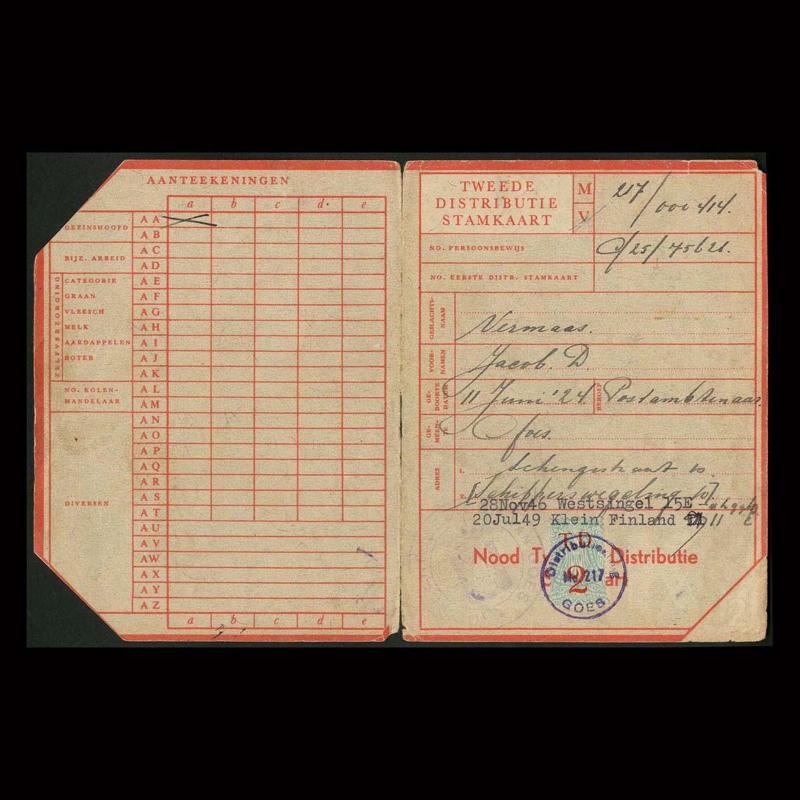 AANTEEKENINGEN
a b c d e
GEZINSHOOFD
AA
AB
BIJZ. ARBEID
AC
AD
ZELFVERZORGING
CATEGORIE AE
GRAAN AF
VLEESCH AG
MELK AH
AARDAPPELEN AI
BOTER AJ
AK
NO. KOLEN-
HANDELAAR
AL
AM
AN
AO
AP
AQ
AR
AS
DIVERSEN
AT
AU
AV
AW
AX
AY
AZ
a b c d e
TWEEDE
DISTRIBUTIE
STAMKAART
M
V
217/000414.
NO. PERSOONSBEWIJS
NO. EERSTE DISTR. STAMKAART
GESLACHTS-
NAAM
Vermaas.
VOOR-
NAMEN
Jacob. D.
GE-
BOORTE
DATUM
11 Juni '24.
BEROEP
Postambtenaar.
GE-
MEENTE
Goes.
ADRES
1.
Schengestraat 10
2.
28Nov46 Westsingel 15E
20Jul49 Klein Finland
T.D.
Nood Distributie
2
Distributie
No. 217
GOES